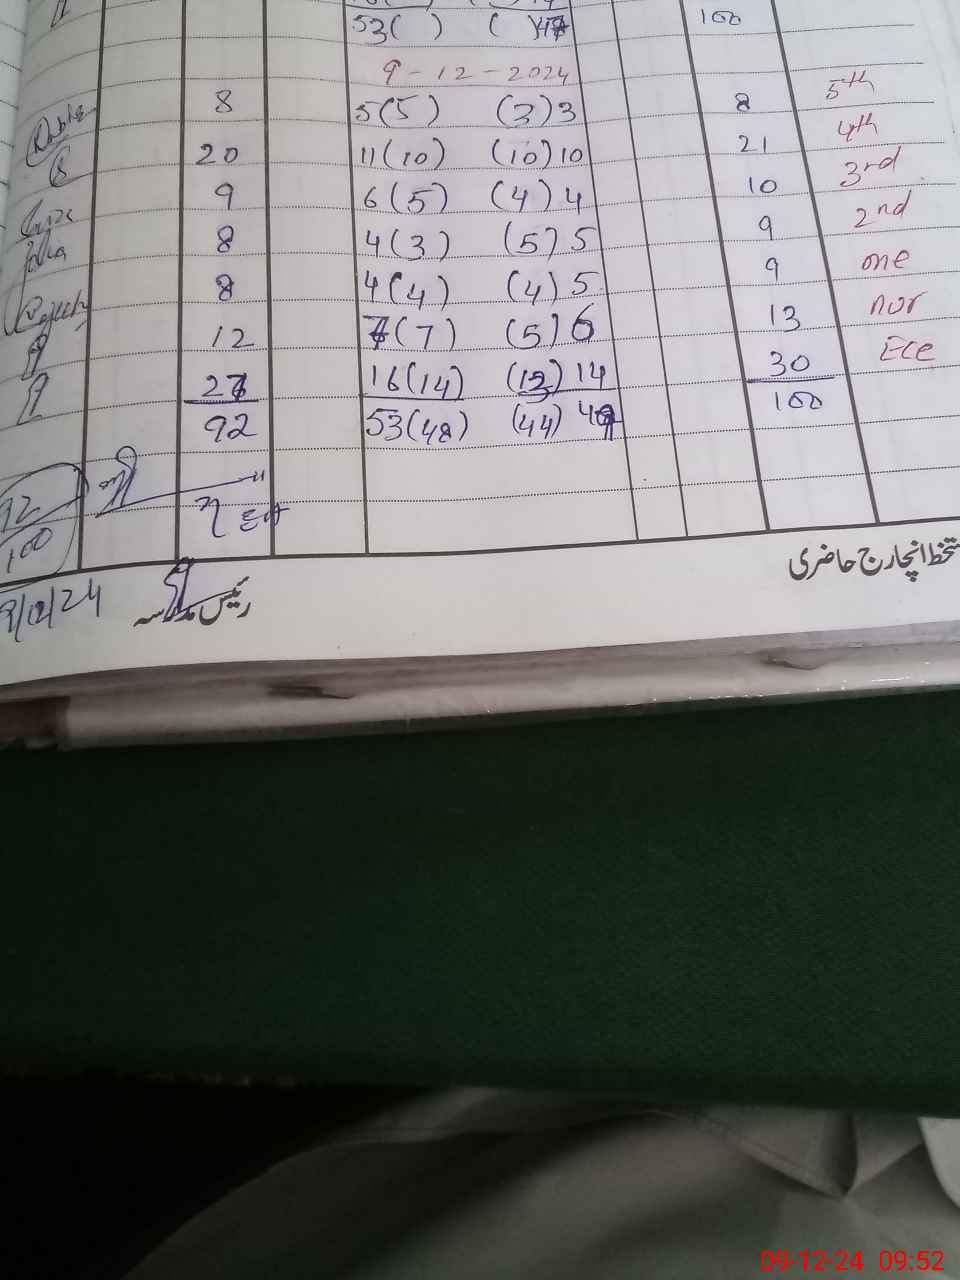 53( ) ( )47 100
9-12-2024
8 5(5) (3)3 8 5th
20 11(10) (10)10 21 4th
9 6(5) (4)4 10 3rd
8 4(3) (5)5 9 2nd
8 4(4) (4)5 9 one
12 7(7) (5)6 13 nur
27 16(14) (13)14 30 Ece
92 53(48) (44) 47 100
92
100
9/12/24 رئیس مدرسہ
دستخط انچارج حاضری
09-12-24 09:52